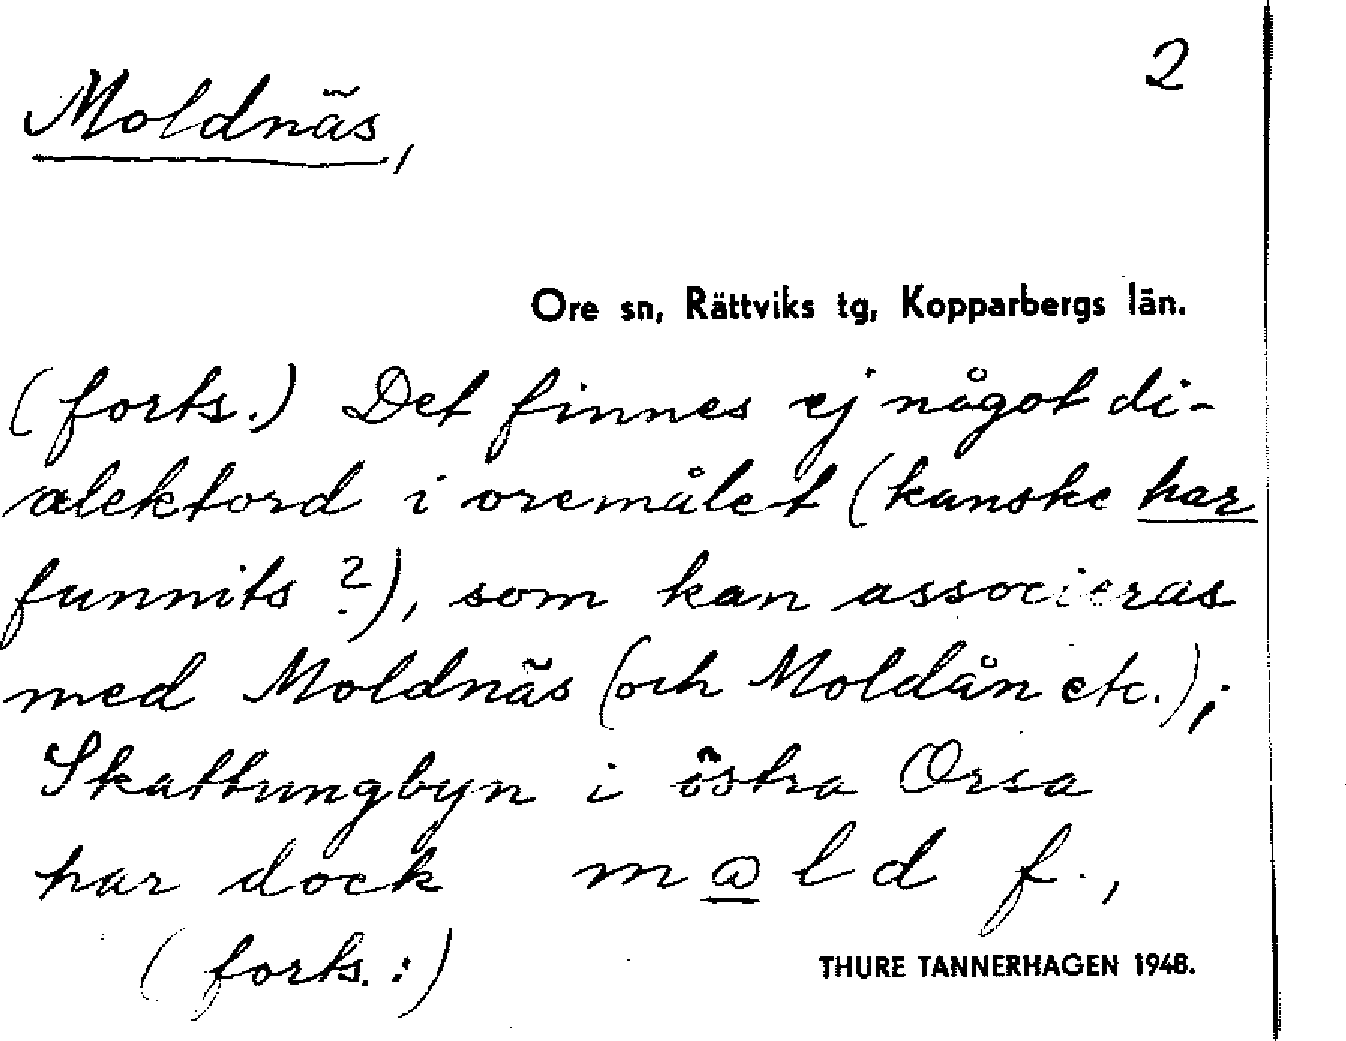 2
Moldnäs,
Ore sn, Rättviks tg, Kopparbergs län.
(forts.) Det finnes ej något di-
alektord i oremålet (kanske har
funnits ?), som kan associeras
med Moldnäs (och Moldån etc.);
Skattungbyn i östra Orsa
har dock m@ld f.,
(forts.:)
THURE TANNERHAGEN 1948.